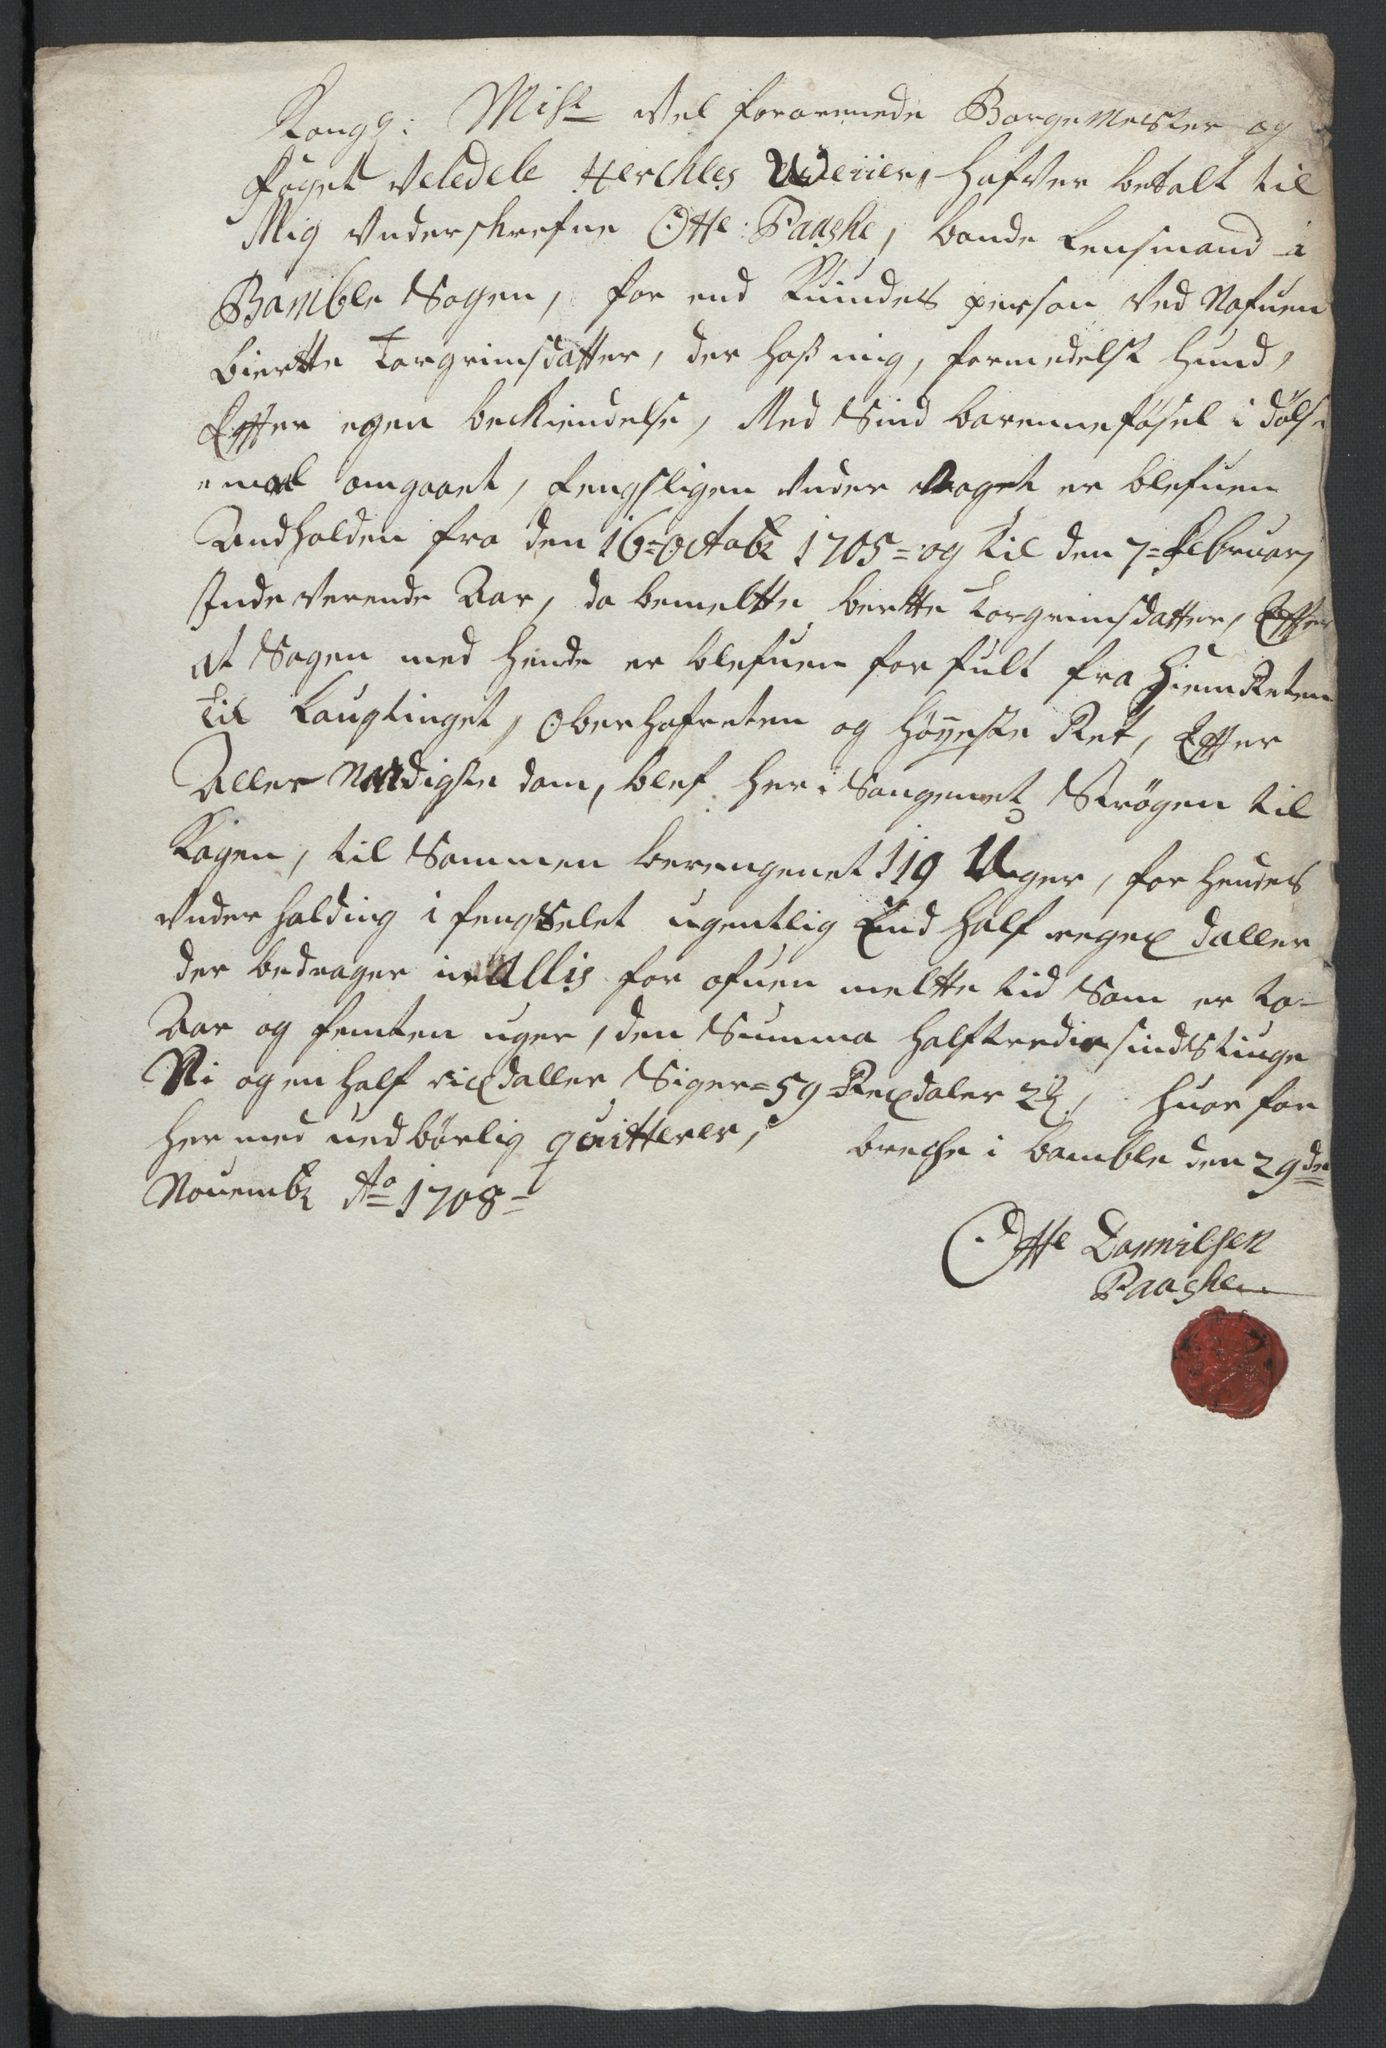 Kongg: Mist vel forormede Borge Mester og
foget Veledele Herckles Weiier, hafver betalt til
Mig Vnderskrefne Otte Paaske, bonde Lensmand i
Bamble Sogen, for end Quindes person ved Nafuen
biertte Torgrimsdatter, der hoß mig, formedelst hund,
Effter egen bekiendelse, Med Sind barenneføsel i døls
emal omgaaet, fengsligen vnder Vaaget er blefuen
Andholden fra den 16=octobr 1705= og til den 7= februarj
Inde verende Aar, da bemeltte bertte Torgrimsdatter, Effter
at Sagen med hende er blefuen for fult fra HiemReten
Til Laugtinget, Oberhofreten og Høyeste Ret, Effter
Aller Naadigste dom, blef her i Sougenet Strøgen til
Kagen, til Sammen berengenet 119 Uger, for hendes
vnder holding i fengselet ugentlig End half regex daller
der bedrager in Allis for ofuen meltte tid Som er to
Aar og femten uger, den Summa halftredie sindstiuge
Ni og en half rixdaller Siger= 59= Rexdaler 2 ₰, huor for
her med uedbørlig quitterer, breche i bamble den 29de
Nouembr Ao 1708=
Otte Dannilsen
Paaske